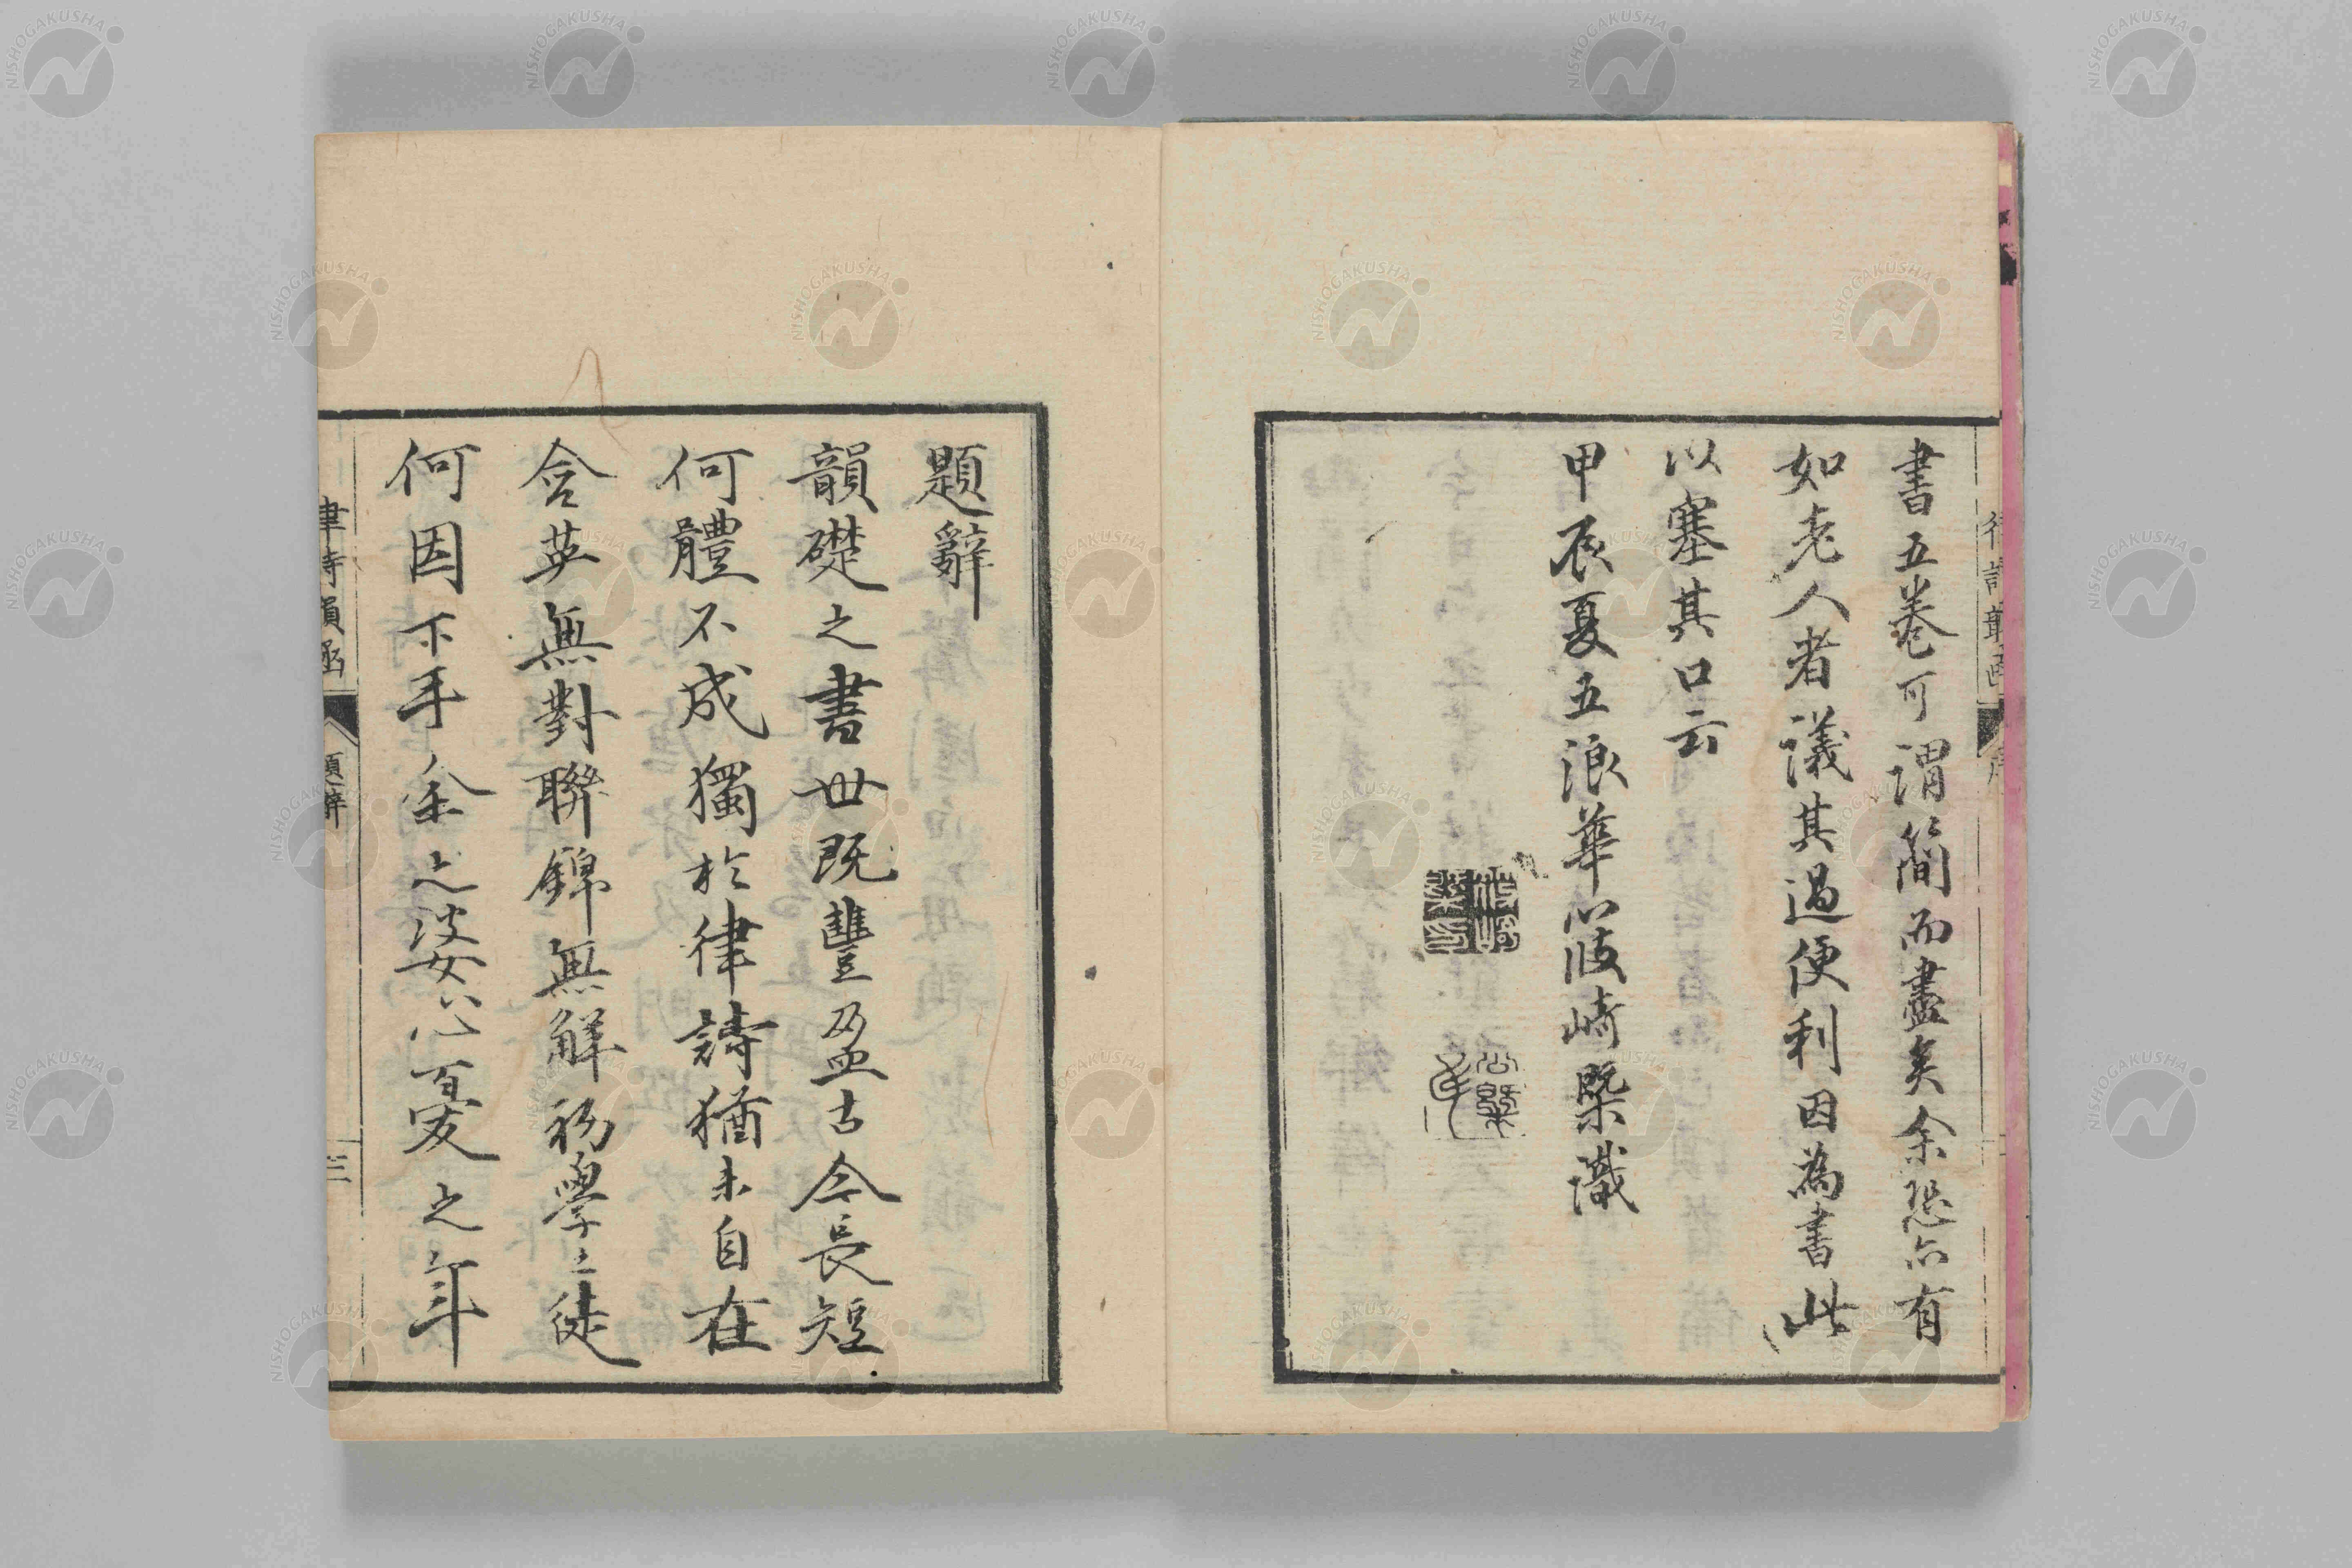 書五巻可謂簡而盡矣余恐亦有
如老人者議其過便利因為書此
以塞其口云
甲辰夏五浪華篠崎槩識
題辭
韻礎之書世既豐盈古今長短
何體不成獨於律詩猶未自在
含英無對聯錦無解初學之徒
何因下手余之婆心憂之年
律詩韻函
題辭
三
NISHOGAKUSHA